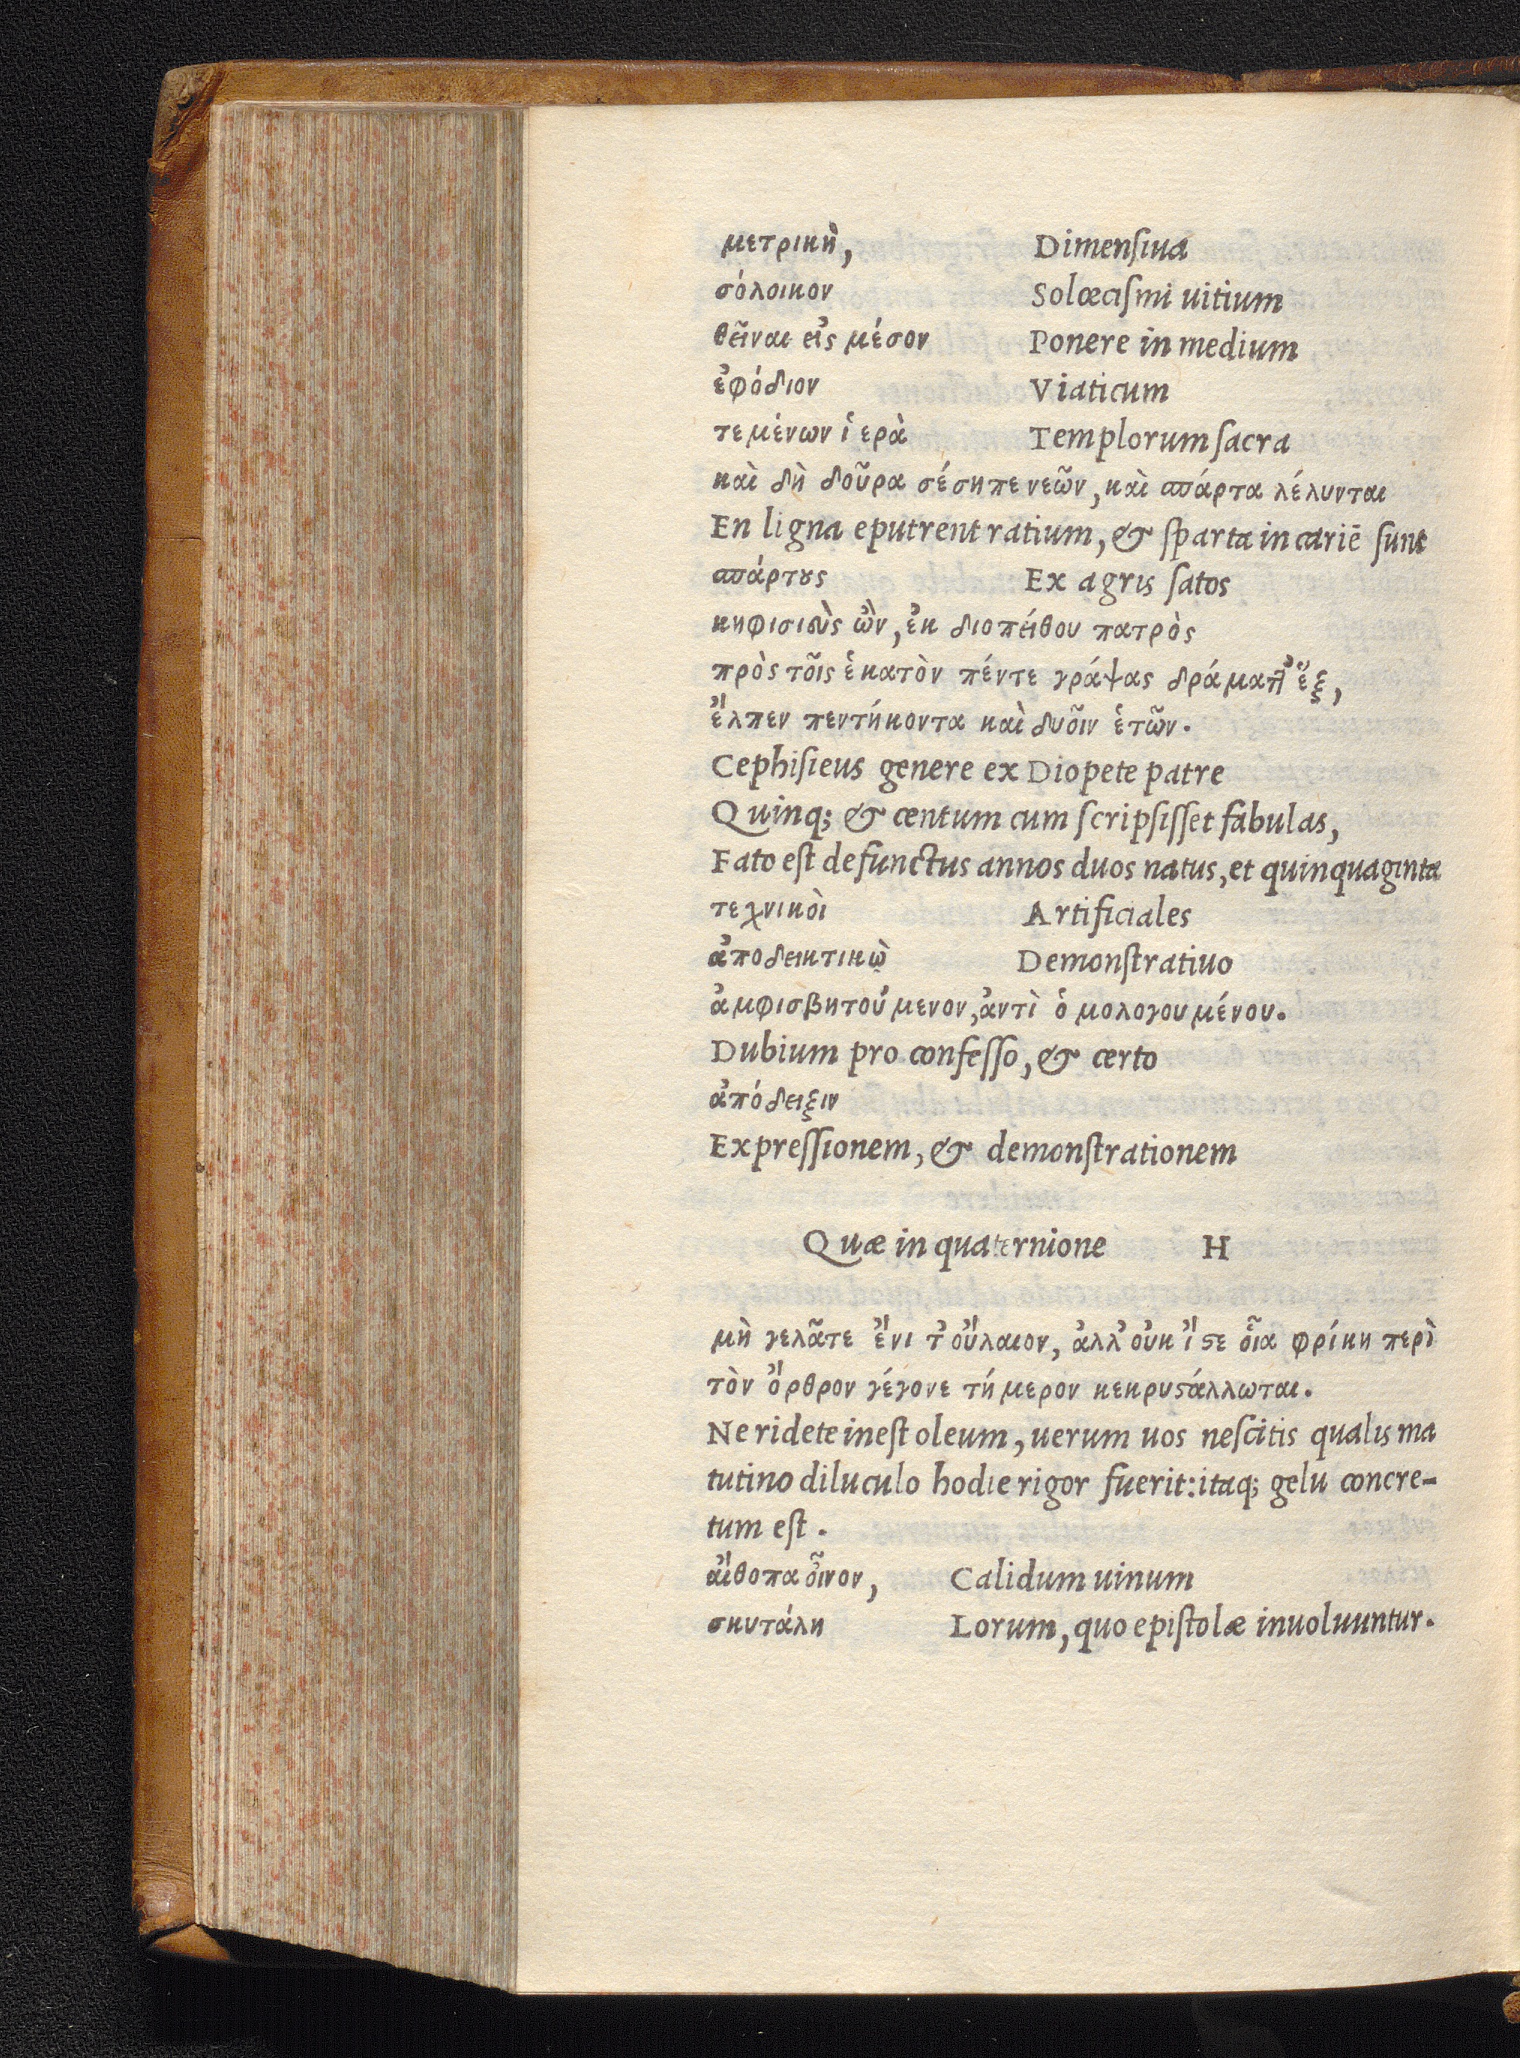 μετρικὴ, Dimensiua
σόλοικον Solœcismi uitium
θεῖναι εἰς μέσον Ponere in medium
ἐφόδιον Viaticum
τεμένων ἱερὰ Templorum sacra
καὶ δὴ δοῦρα σέσηπε νεῶν, καὶ σπάρτα λέλυνται
En ligna eputrent ratium, & sparta in cariē sunt
σπάρτους Ex agris satos
κηφισιεὺς ὢν, ἐκ διοπείθου πατρὸς
πρὸς τοῖς ἑκατὸν πέντε γράψας δράματ' ἓξ,
ἔλπεν πεντήκοντα καὶ δυοῖν ἐτῶν.
Cephisieus genere ex Diopete patre
Quinq; & centum cum scripsisset fabulas,
Fato est defunctus annos duos natus, et quinquaginta
τεχνικοὶ Artificiales
ἀποδεικτικῷ Demonstratiuo
ἀμφισβητούμενον, ἀντὶ ὁμολογουμένου.
Dubium pro confesso, & certo
ἀπόδειξιν
Expressionem, & demonstrationem
Quæ in quaternione H
μὴ γελᾶτε ἔνι τ' οὔλαιον, ἀλλ' οὐκ ἴστε οἷα φρίκη περὶ
τὸν ὄρθρον γέγονε τήμερον κεκρυστάλλωται.
Ne ridete inest oleum, uerum uos nescitis qualis ma
tutino diluculo hodie rigor fuerit: itaq; gelu concre-
tum est.
αἴθοπα οἶνον, Calidum uinum
σκυτάλη Lorum, quo epistolæ inuoluuntur.